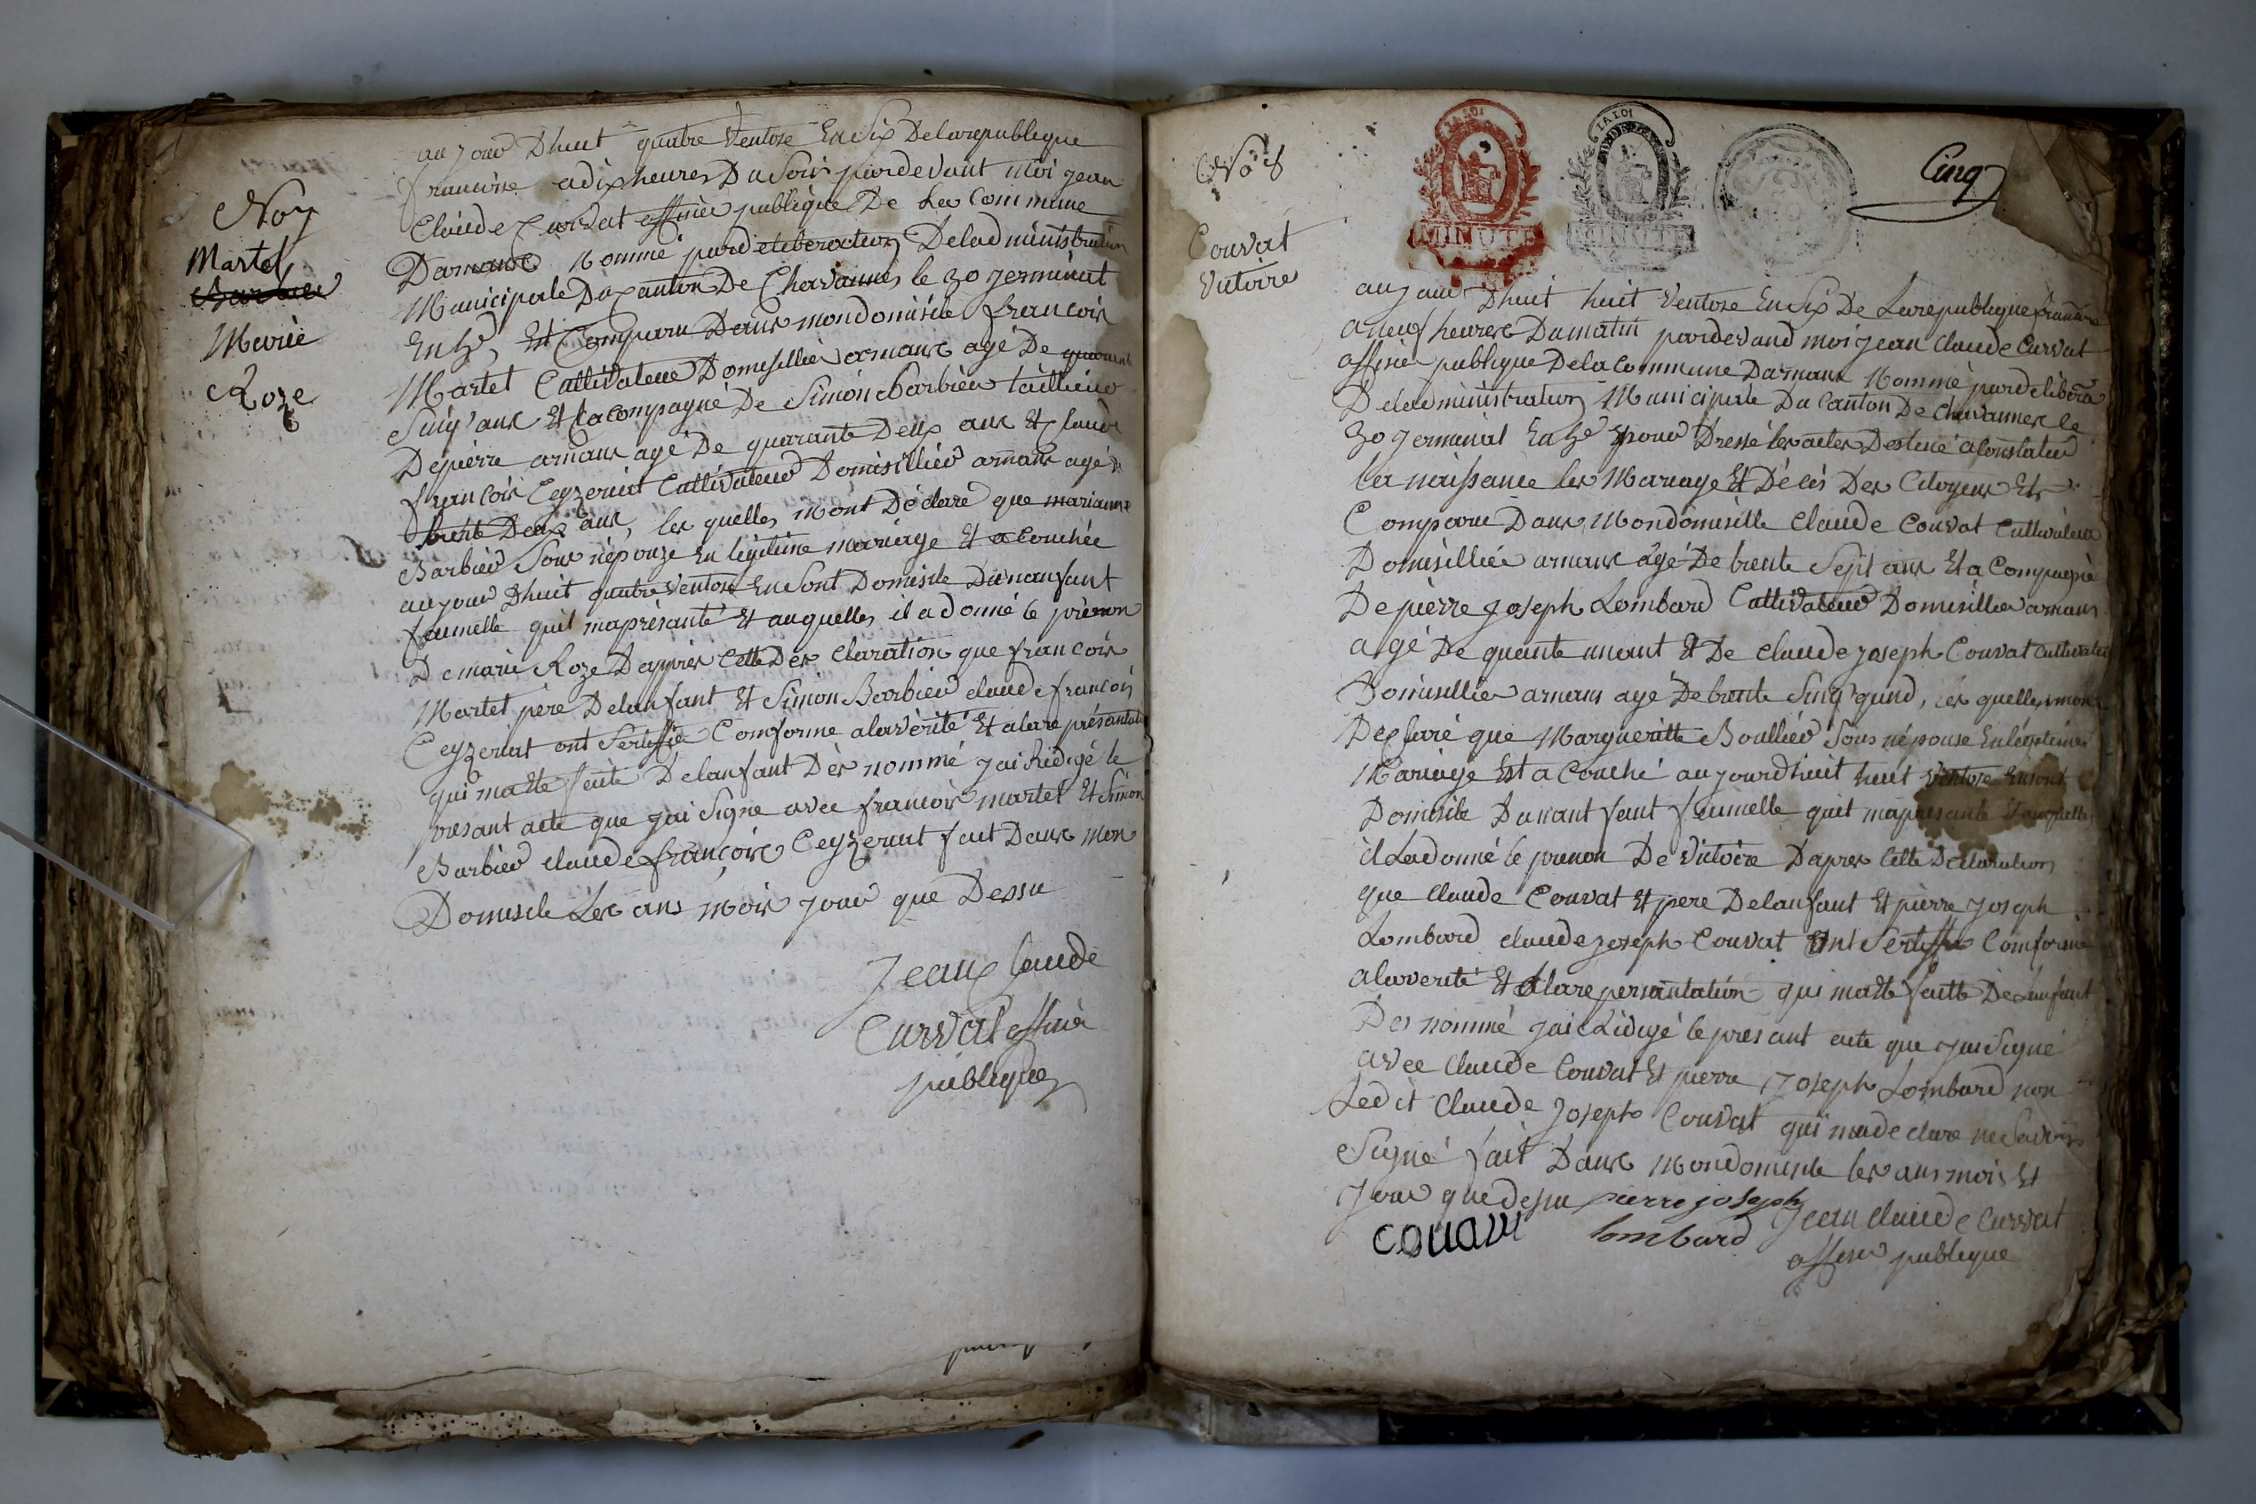 No 7
Martel
Barbier
Marie
Roze
aujour Dhuit quatre Ventose En Six De larepublique
francoise a dix heures Du Soir pardevant Moi jean
Claude Curvat officier publique De La Commune
Darnans Nommé pardeliberation Deladministration
Municipale Du Canton De Chavannes le 30 germinal
Est Comparu Dans mondomisile francois
Martel Cultivateur Domisillier arnans agé De quarante
Sinq ans Et acompagné De Simon Barbier tailleur
Depierre arnans agé De quarante Deux ans Et Claude
francois Ceyzeriat Cultivateur Domisillier arnans agé De
trente Deux ans, les quelles Mont Déclaré que marianne
Barbier Sons népouze En légitime mariage Et acouchée
aujour Dhuit quatre Ventose En Sont Domisile Dunanfant
feumelle quil maprésanté Et auquelles il a donné le prénon
De marie Roze Dapprès Cette Des claration que francois
Martel père Delanfant Et Simon Barbier claude francois
Ceyzeriat ont Sertiffié Comforme alavérité Et alareprésantation
qui matté faite Delanfant Dès nommé jai Rédigé le
présant acte que jai Signé avec francois martel Et Simon
Barbier claude francois Ceyzeriat fait Dans mon
Domisile Les ans mois jour que Dessu
Jean Claude
Curvat officier
publique
No 8
Couvat
Victoire
LA LOI
MINUTE
LA LOI
MINUTE
Cinq
aujour Dhuit huit Ventose En Six De Larepublique francaise
a neuf heures Dumatin pardevand moi jean claude Curvat
officier publique Dela Commune Darnans Nommé pardelibera
Deladministration Municipale Du Canton De Chavannes le
30 germinal pour Dressé les actes Destiné a Constater
la naissance les Mariage Et Décès Des Citoyens Est
Comparu Dans Mondomisille Claude Couvat Cultivateur
Domisillié arnans agé De trente Sept ans Et a Compagné
De pierre joseph Lombard Cultivateur Domisillier arnans
agé De Et De claude joseph Couvat Cultivateur
Domisillier arnans agé De trente Sinq les quelles mont
Desclaré que Marguerитte Boullier Sons népouse En légitimé
Mariage Est a Couché aujourdhuit huit Ventose En sont
Domisile Dunant fant feumelle quil maprésanté Et auquelle
il La donné le prenon De Victoire Dapres Cette Déclaration
que claude Couvat Et père Delanfant Et pierre joseph
Lombard claude joseph Couvat Ont Sertiffié Comforme
alaverité Et alarepersantation qui matté faitte De Lanfant
Des nommé jai Rédigé le présant acte que jai Signé
avec Claude Couvat Et pierre Joseph Lombard non
Ledit Claude Joseph Couvat qui madeclare ne Savoir
Signé fait Dans Mondomisile les ans mois Et
jour que dessu pierre joseph
lombard
Jean claude Curvat
officier publique